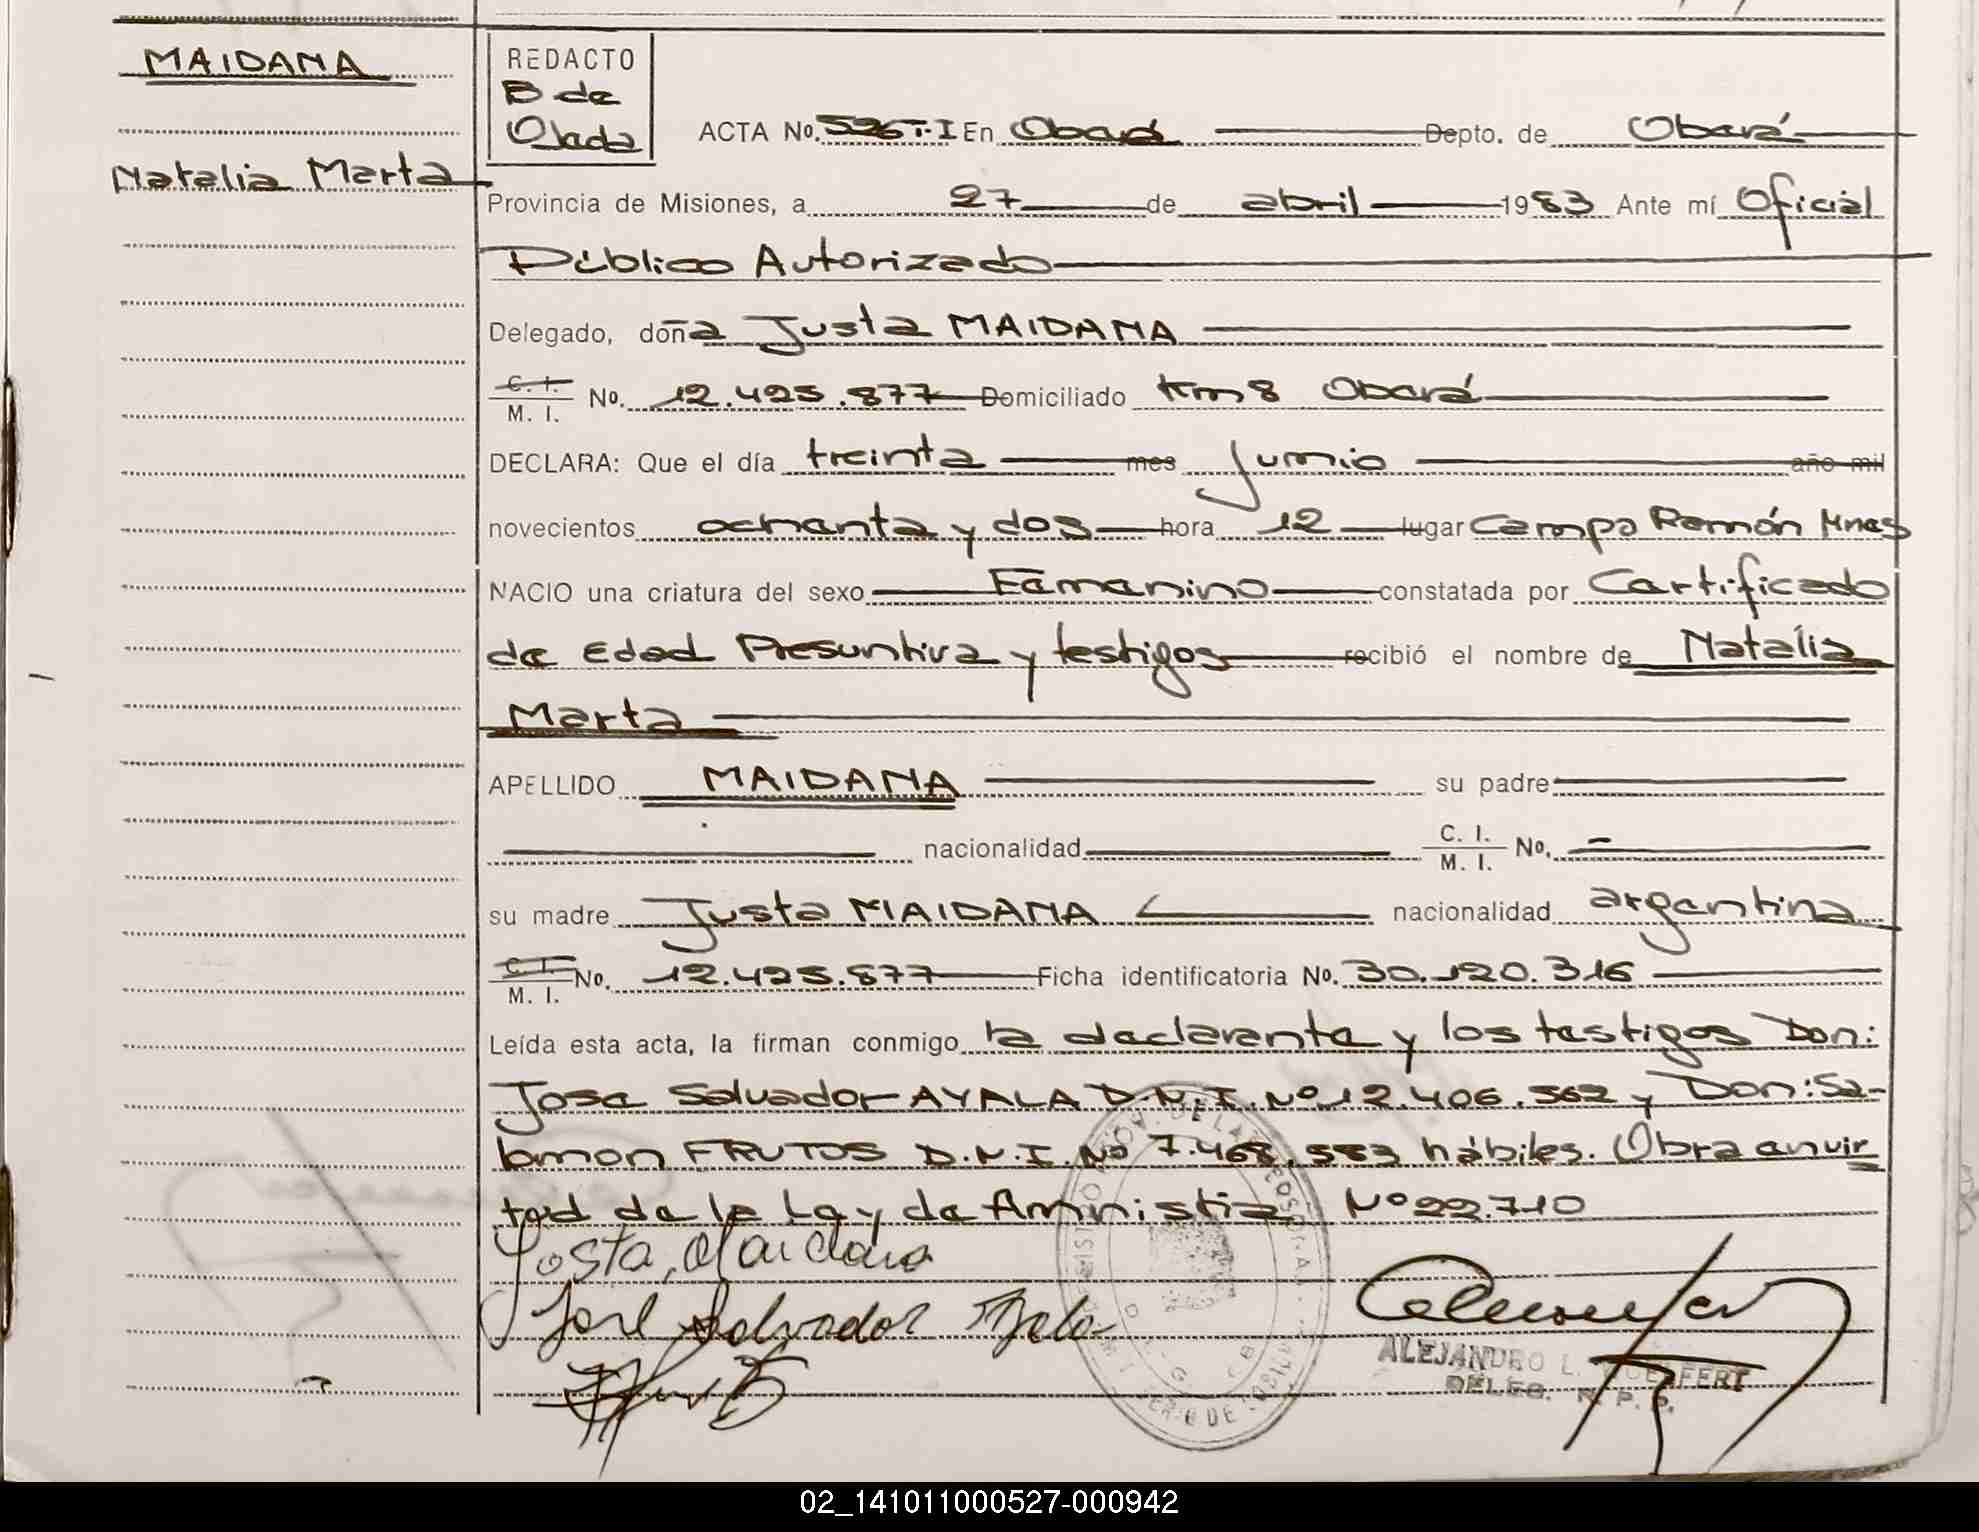 MAIDANA
Natalia Marta
REDACTO
B de
Ojeda
ACTA No. 526 T-I En Oberá Depto. de Oberá
Provincia de Misiones, a 27 de abril 1983 Ante mí Oficial
Público Autorizado
Delegado, doña Justa MAIDANA
C. I. / M. I. No. 12.425.877 Domiciliado Km 8 Oberá
DECLARA: Que el día treinta mes Junio año mil
novecientos ochenta y dos hora 12 lugar Campo Ramón Mnes
NACIO una criatura del sexo Femenino constatada por Certificado
de Edad Presuntiva y testigos recibió el nombre de Natalia
Marta
APELLIDO MAIDANA su padre
nacionalidad C. I. / M. I. No.
su madre Justa MAIDANA nacionalidad argentina
C. I. / M. I. No. 12.425.877 Ficha identificatoria No. 30.120.316
Leída esta acta, la firman conmigo la declarante y los testigos Don:
Jose Salvador AYALA D.N.I. Nº 12.406.562 y Don: Sa-
lomon FRUTOS D.N.I. Nº 7.468.553 hábiles. Obra en vir
tud de la Ley de Amnistia Nº 22.710
Josta Maidana
José Salvador Ayala
ALEJANDRO L.
DELEG. R. P. P.
02_141011000527-000942